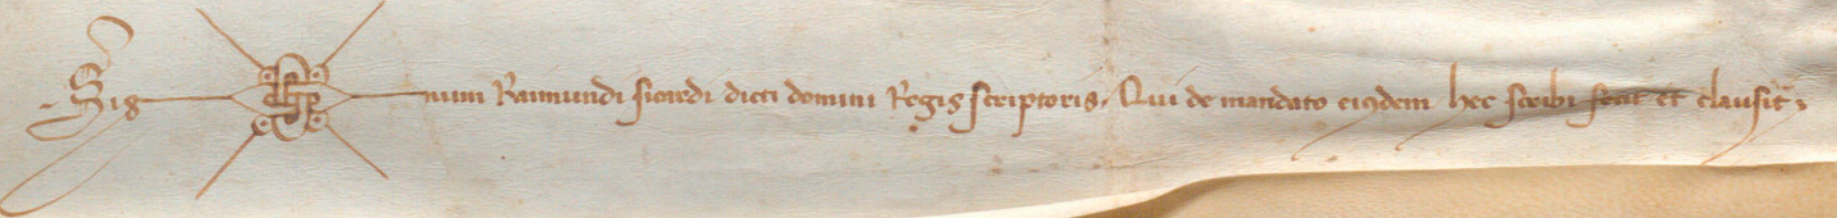 Sig num Raimundi sicardi dicti domini Regis scriptoris. Qui de mandato eiusdem hec scribi fecit et clausit.